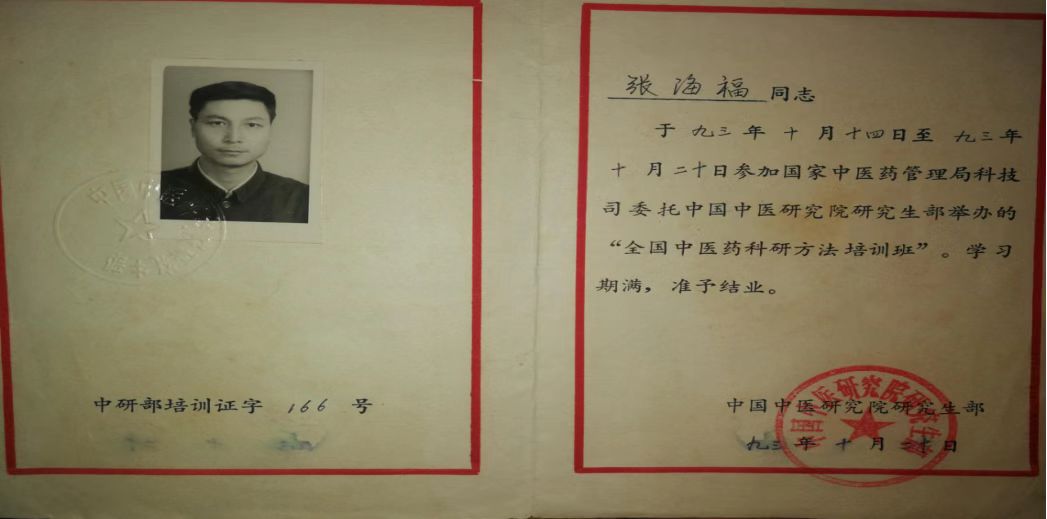 中研部培训证字 166 号
张海福 同志
于九三年十月十四日至九三年
十月二十日参加国家中医药管理局科技
司委托中国中医研究院研究生部举办的
“全国中医药科研方法培训班”。学习
期满，准予结业。
中国中医研究院研究生部
九三年十月二十日
中国中医研究院研究生部